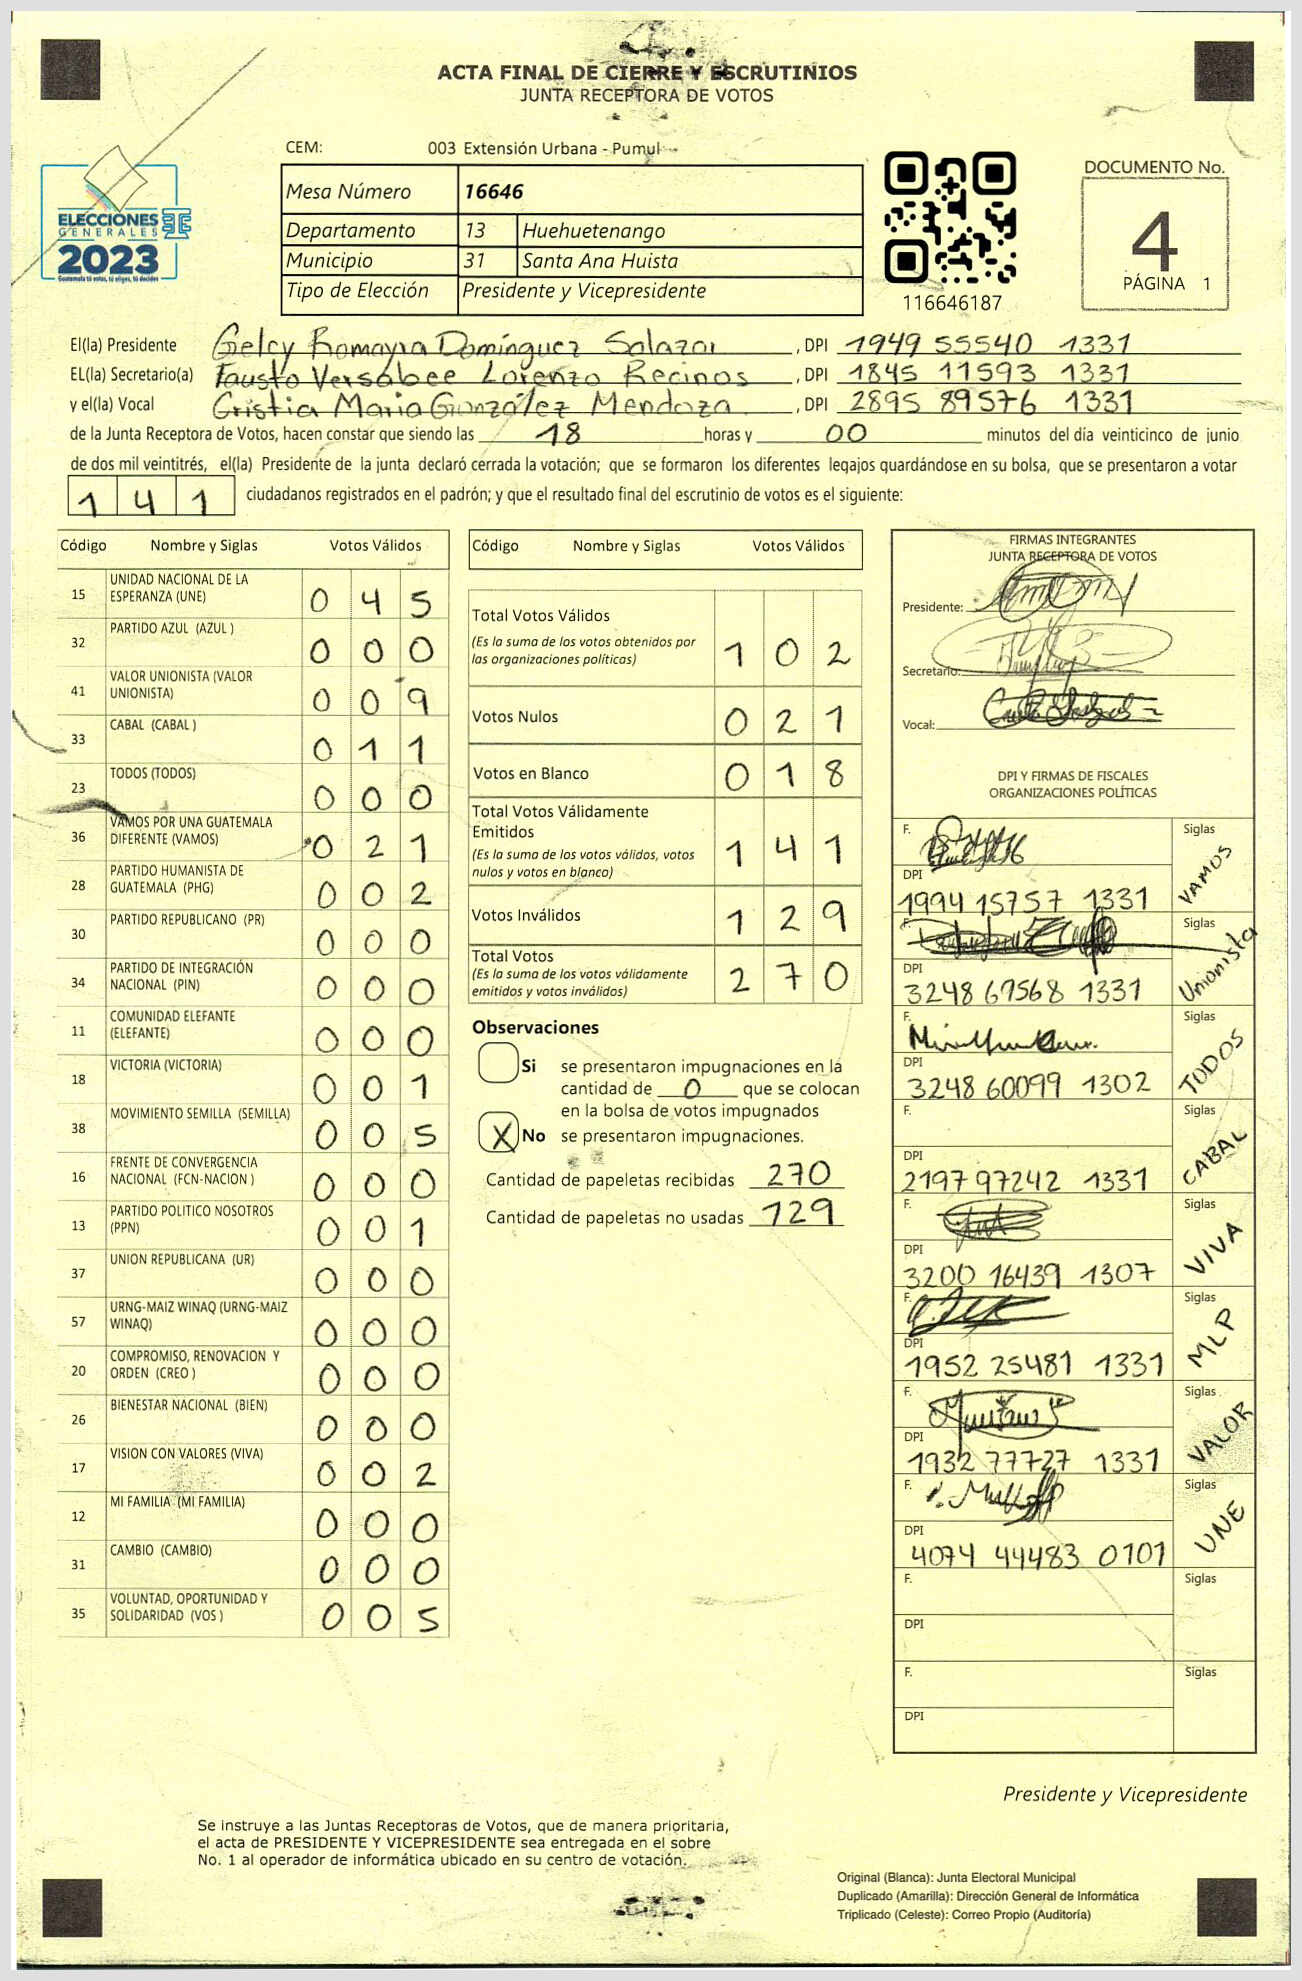 ACTA FINAL DE CIERRE Y ESCRUTINIOS
JUNTA RECEPTORA DE VOTOS
CEM: 003 Extensión Urbana - Pumul
Mesa Número 16646
Departamento 13 Huehuetenango
Municipio 31 Santa Ana Huista
Tipo de Elección Presidente y Vicepresidente
ELECCIONES
GENERALES
2023
116646187
DOCUMENTO No.
4
PÁGINA 1
El(la) Presidente Gelcy Romayra Domínguez Salazar, DPI 1949 55540 1331
EL(la) Secretario(a) Fausto Versabee Lorenzo Recinos, DPI 1845 11593 1331
y el(la) Vocal Cristia Maria González Mendoza, DPI 2895 89576 1331
de la Junta Receptora de Votos, hacen constar que siendo las 18 horas y 00 minutos del día veinticinco de junio
de dos mil veintitrés, el(la) Presidente de la junta declaró cerrada la votación; que se formaron los diferentes legajos guardándose en su bolsa, que se presentaron a votar
141 ciudadanos registrados en el padrón; y que el resultado final del escrutinio de votos es el siguiente:
Código Nombre y Siglas Votos Válidos
15 UNIDAD NACIONAL DE LA
ESPERANZA (UNE) 0 4 5
32 PARTIDO AZUL (AZUL ) 0 0 0
41 VALOR UNIONISTA (VALOR
UNIONISTA) 0 0 9
33 CABAL (CABAL ) 0 1 1
23 TODOS (TODOS) 0 0 0
36 VAMOS POR UNA GUATEMALA
DIFERENTE (VAMOS) 0 2 1
28 PARTIDO HUMANISTA DE
GUATEMALA (PHG) 0 0 2
30 PARTIDO REPUBLICANO (PR) 0 0 0
34 PARTIDO DE INTEGRACIÓN
NACIONAL (PIN) 0 0 0
11 COMUNIDAD ELEFANTE
(ELEFANTE) 0 0 0
18 VICTORIA (VICTORIA) 0 0 1
38 MOVIMIENTO SEMILLA (SEMILLA) 0 0 5
16 FRENTE DE CONVERGENCIA
NACIONAL (FCN-NACION ) 0 0 0
13 PARTIDO POLITICO NOSOTROS
(PPN) 0 0 1
37 UNION REPUBLICANA (UR) 0 0 0
57 URNG-MAIZ WINAQ (URNG-MAIZ
WINAQ) 0 0 0
20 COMPROMISO, RENOVACION Y
ORDEN (CREO ) 0 0 0
26 BIENESTAR NACIONAL (BIEN) 0 0 0
17 VISION CON VALORES (VIVA) 0 0 2
12 MI FAMILIA (MI FAMILIA) 0 0 0
31 CAMBIO (CAMBIO) 0 0 0
35 VOLUNTAD, OPORTUNIDAD Y
SOLIDARIDAD (VOS ) 0 0 5
Código Nombre y Siglas Votos Válidos
Total Votos Válidos
(Es la suma de los votos obtenidos por
las organizaciones políticas) 1 0 2
Votos Nulos 0 2 1
Votos en Blanco 0 1 8
Total Votos Válidamente
Emitidos
(Es la suma de los votos válidos, votos
nulos y votos en blanco) 1 4 1
Votos Inválidos 1 2 9
Total Votos
(Es la suma de los votos válidamente
emitidos y votos inválidos) 2 7 0
Observaciones
Si se presentaron impugnaciones en la
cantidad de 0 que se colocan
en la bolsa de votos impugnados
X No se presentaron impugnaciones.
Cantidad de papeletas recibidas 270
Cantidad de papeletas no usadas 129
FIRMAS INTEGRANTES
JUNTA RECEPTORA DE VOTOS
Presidente:
Secretario:
Vocal:
DPI Y FIRMAS DE FISCALES
ORGANIZACIONES POLÍTICAS
F. Siglas
DPI VAMOS
1994 15757 1331
F. Siglas
DPI Unionista
3248 67568 1331
F. Siglas
DPI TODOS
3248 60099 1302
F. Siglas
DPI CABAL
2197 97242 1331
F. Siglas
DPI VIVA
3200 16439 1307
F. Siglas
DPI MLP
1952 25481 1331
F. Siglas
DPI VALOR
1932 77727 1331
F. Siglas
DPI UNE
4074 44483 0101
F. Siglas
DPI
F. Siglas
DPI
Presidente y Vicepresidente
Se instruye a las Juntas Receptoras de Votos, que de manera prioritaria,
el acta de PRESIDENTE Y VICEPRESIDENTE sea entregada en el sobre
No. 1 al operador de informática ubicado en su centro de votación.
Original (Blanca): Junta Electoral Municipal
Duplicado (Amarilla): Dirección General de Informática
Triplicado (Celeste): Correo Propio (Auditoría)